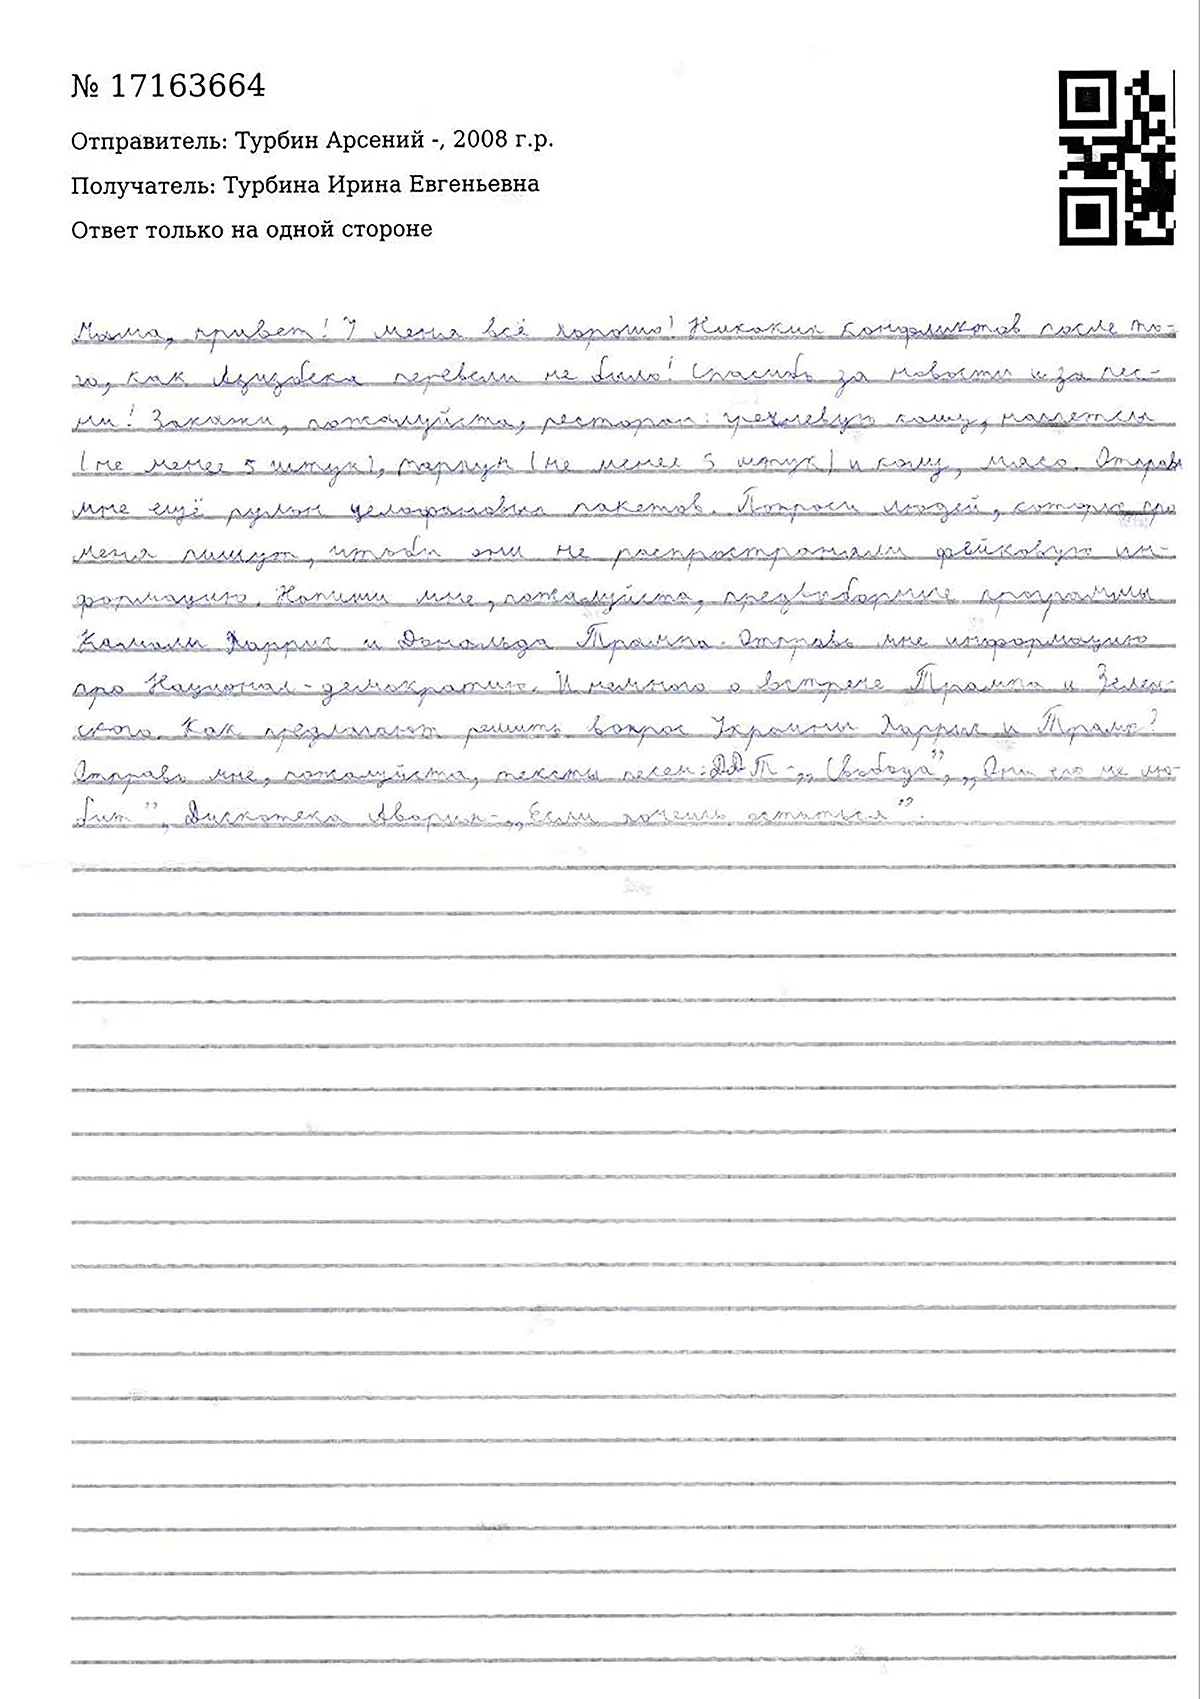 № 17163664
Отправитель: Турбин Арсений -, 2008 г.р.
Получатель: Турбина Ирина Евгеньевна
Ответ только на одной стороне
Мама, привет! У меня всё хорошо! Никаких конфликтов после то-
го, как Азизбека перевели не было! Спасибо за новости и за пес-
ни! Закажи, пожалуйста, ресторан: гречневую кашу, наггетсы
(не менее 5 штук), (не менее 5 штук) и кашу, мясо. Отправь
мне ещё рулон целофановых пакетов. Попроси людей, которые про
меня пишут, чтобы они не распространяли фейковую ин-
формацию. Напиши мне, пожалуйста, предвыборные программы
Камалы Харрис и Дональда Трампа. Отправь мне информацию
про Национал-демократию. И немного о встрече Трампа и Зелен-
ского. Как предлагают решить вопрос Украины Харрис и Трамп?
Отправь мне, пожалуйста, тексты песен: ДДТ-„Свобода”, „Они его не лю-
бит”, Дискотека Авария-„Если хочешь остаться”.